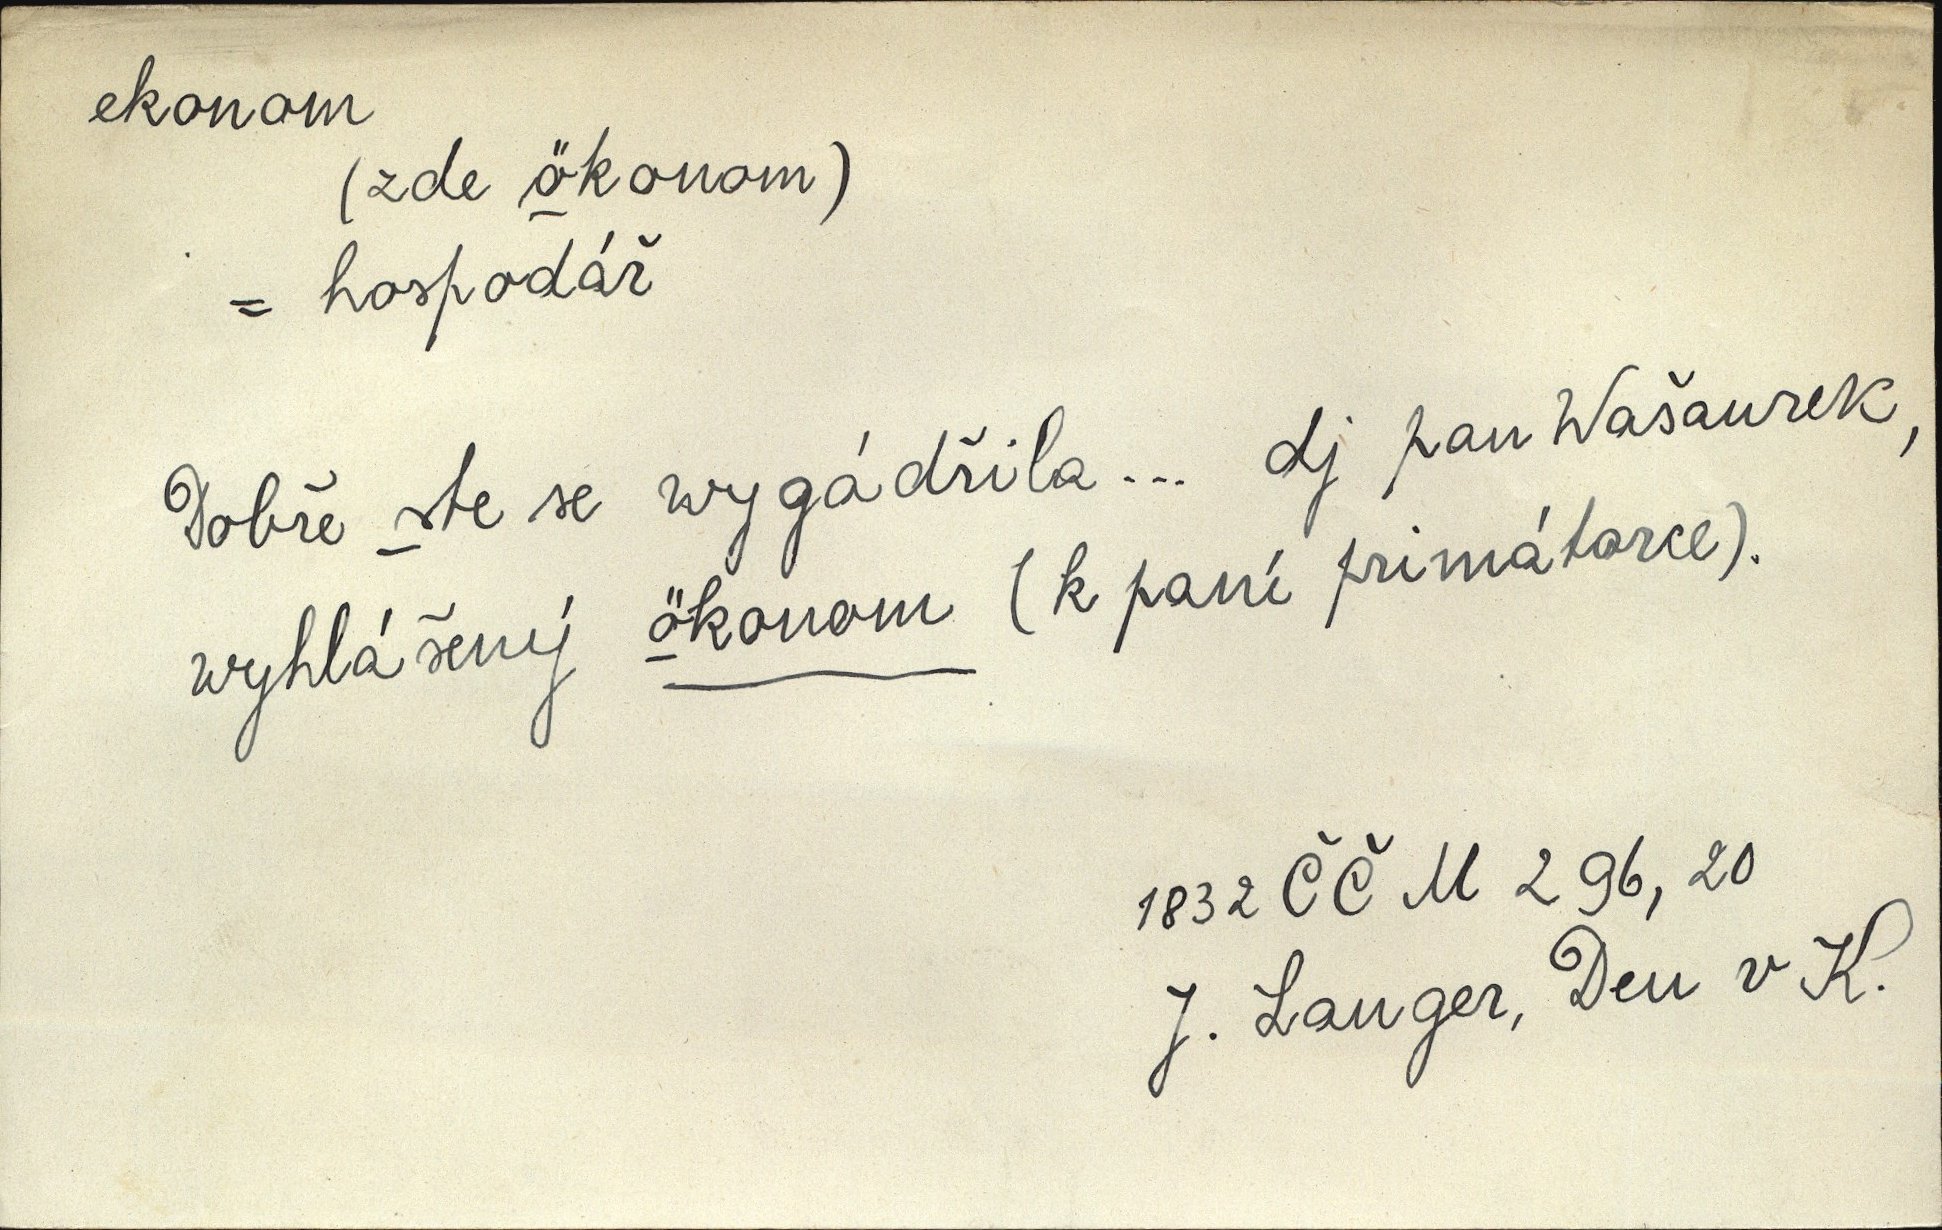 ekonom
(zde ökonom)
= hospodář
Dobře ste se wygádřila... dj pan Wašaurek,
wyhlášený ökonom (k paní primátorce).
1832 ČČM 296, 20
J. Langer, Den v K.